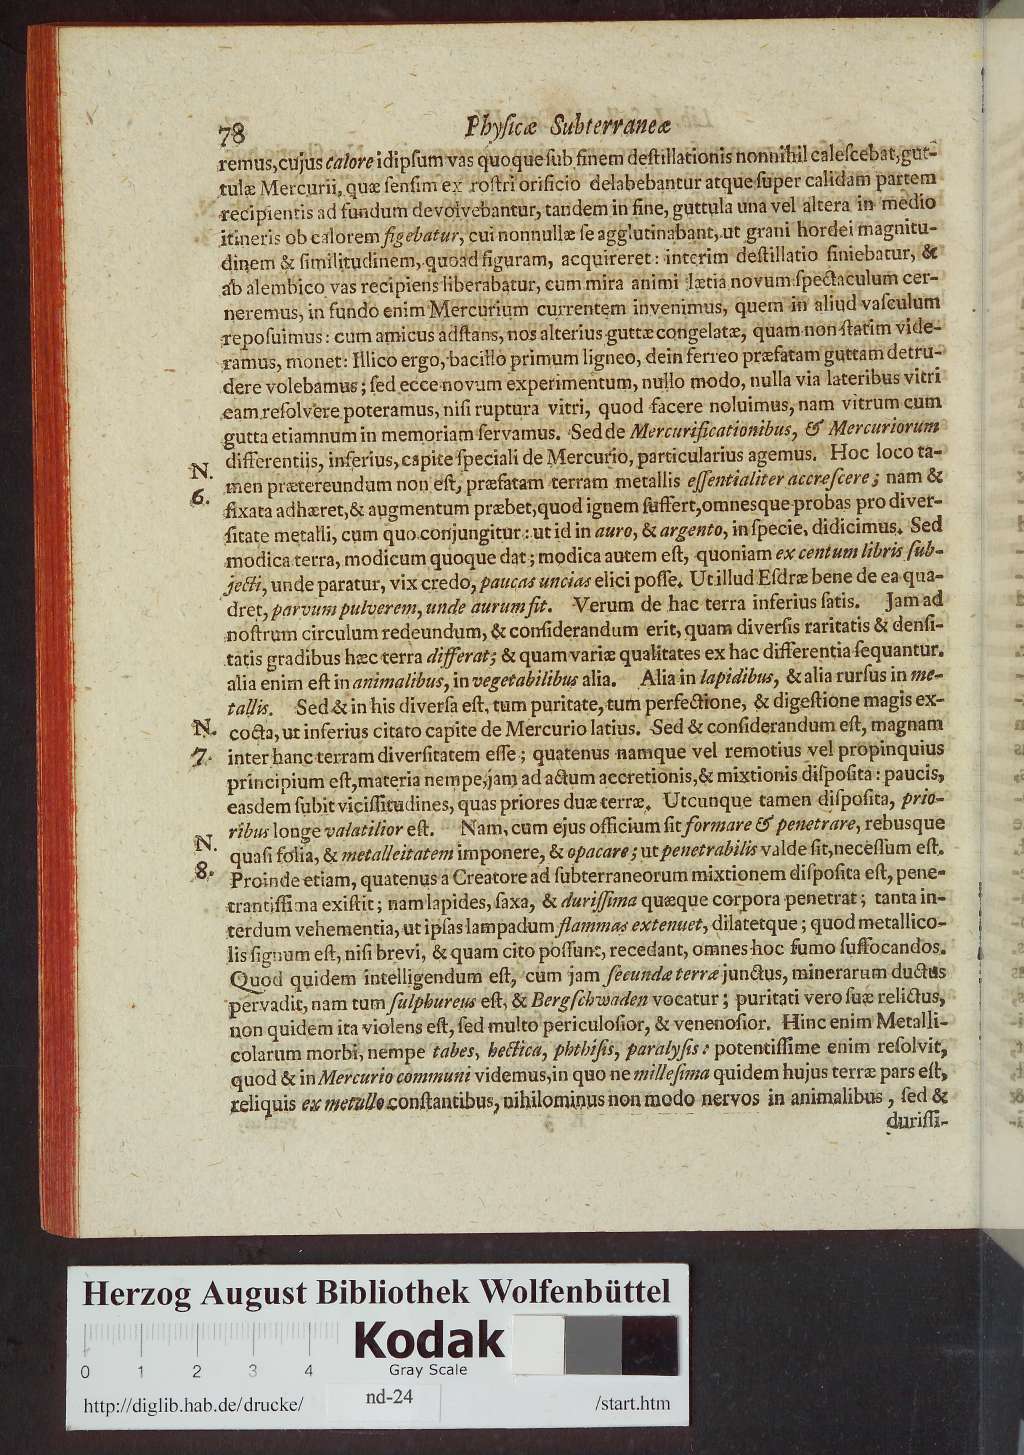 78
Physicæ Subterraneæ
remus, cujus calore id ipſum vas quoque ſub finem deſtillationis nonnihil caleſcebat, gut-
tulæ Mercurii, quæ ſenſim ex roſtri orificio delabebantur atque ſuper calidam partem
recipientis ad fundum devolvebantur, tandem in fine, guttula una vel altera in medio
itineris ob calorem figebatur, cui nonnullæ ſe agglutinabant, ut grani hordei magnitu-
dinem & ſimilitudinem, quoad figuram, acquireret: interim deſtillatio finiebatur, &
ab alembico vas recipiens liberabatur, cum mira animi lætia novum ſpectaculum cer-
neremus, in fundo enim Mercurium currentem invenimus, quem in aliud vaſculum
repoſuimus: cum amicus adſtans, nos alterius guttæ congelatæ, quam non ſtatim vide-
ramus, monet: Illico ergo, bacillo primum ligneo, dein ferreo præfatam guttam detru-
dere volebamus; ſed ecce novum experimentum, nullo modo, nulla via lateribus vitri
eam reſolvere poteramus, niſi ruptura vitri, quod facere noluimus, nam vitrum cum
gutta etiamnum in memoriam ſervamus. Sed de Mercurificationibus, & Mercuriorum
differentiis, inferius, capite ſpeciali de Mercurio, particularius agemus. Hoc loco ta-
N.
men prætereundum non eſt, præfatam terram metallis eſſentialiter accreſcere; nam &
6.
fixata adhæret, & augmentum præbet, quod ignem ſuffert, omnesque probas pro diver-
ſitate metalli, cum quo conjungitur: ut id in auro, & argento, in ſpecie, didicimus. Sed
modica terra, modicum quoque dat; modica autem eſt, quoniam ex centum libris ſub-
jecti, unde paratur, vix credo, paucas uncias elici poſſe. Ut illud Eſdræ bene de ea qua-
dret, parvum pulverem, unde aurum fit. Verum de hac terra inferius ſatis. Jam ad
noſtrum circulum redeundum, & conſiderandum erit, quam diverſis raritatis & denſi-
tatis gradibus hæc terra differat; & quam variæ qualitates ex hac differentia ſequantur.
alia enim eſt in animalibus, in vegetabilibus alia. Alia in lapidibus, & alia rurſus in me-
tallis. Sed & in his diverſa eſt, tum puritate, tum perfectione, & digeſtione magis ex-
N.
cocta, ut inferius citato capite de Mercurio latius. Sed & conſiderandum eſt, magnam
7.
inter hanc terram diverſitatem eſſe; quatenus namque vel remotius vel propinquius
principium eſt, materia nempe, jam ad actum accretionis, & mixtionis diſpoſita: paucis,
easdem ſubit viciſſitudines, quas priores duæ terræ. Utcunque tamen diſpoſita, prio-
ribus longe valatilior eſt. Nam, cum ejus officium ſit formare & penetrare, rebusque
N.
quaſi folia, & metalleitatem imponere, & opacare; ut penetrabilis valde ſit, neceſſum eſt.
8.
Proinde etiam, quatenus a Creatore ad ſubterraneorum mixtionem diſpoſita eſt, pene-
trantiſſima exiſtit; nam lapides, ſaxa, & duriſſima quæque corpora penetrat; tanta in-
terdum vehementia, ut ipſas lampadum flammas extenuet, dilatetque; quod metallico-
lis ſignum eſt, niſi brevi, & quam cito poſſunt, recedant, omnes hoc fumo ſuffocandos.
Quod quidem intelligendum eſt, cum jam ſecundæ terræ junctus, minerarum ductus
pervadit, nam tum ſulphureus eſt, & Bergſchwaden vocatur; puritati vero ſuæ relictus,
non quidem ita violens eſt, ſed multo periculoſior, & venenoſior. Hinc enim Metalli-
colarum morbi, nempe tabes, hectica, phthiſis, paralyſis: potentiſſime enim reſolvit,
quod & in Mercurio communi videmus, in quo ne milleſima quidem hujus terræ pars eſt,
reliquis ex metallo conſtantibus, nihilominus non modo nervos in animalibus, ſed &
duriſſi-
Herzog August Bibliothek Wolfenbüttel
Kodak
Gray Scale
0 1 2 3 4
http://diglib.hab.de/drucke/ nd-24 /start.htm